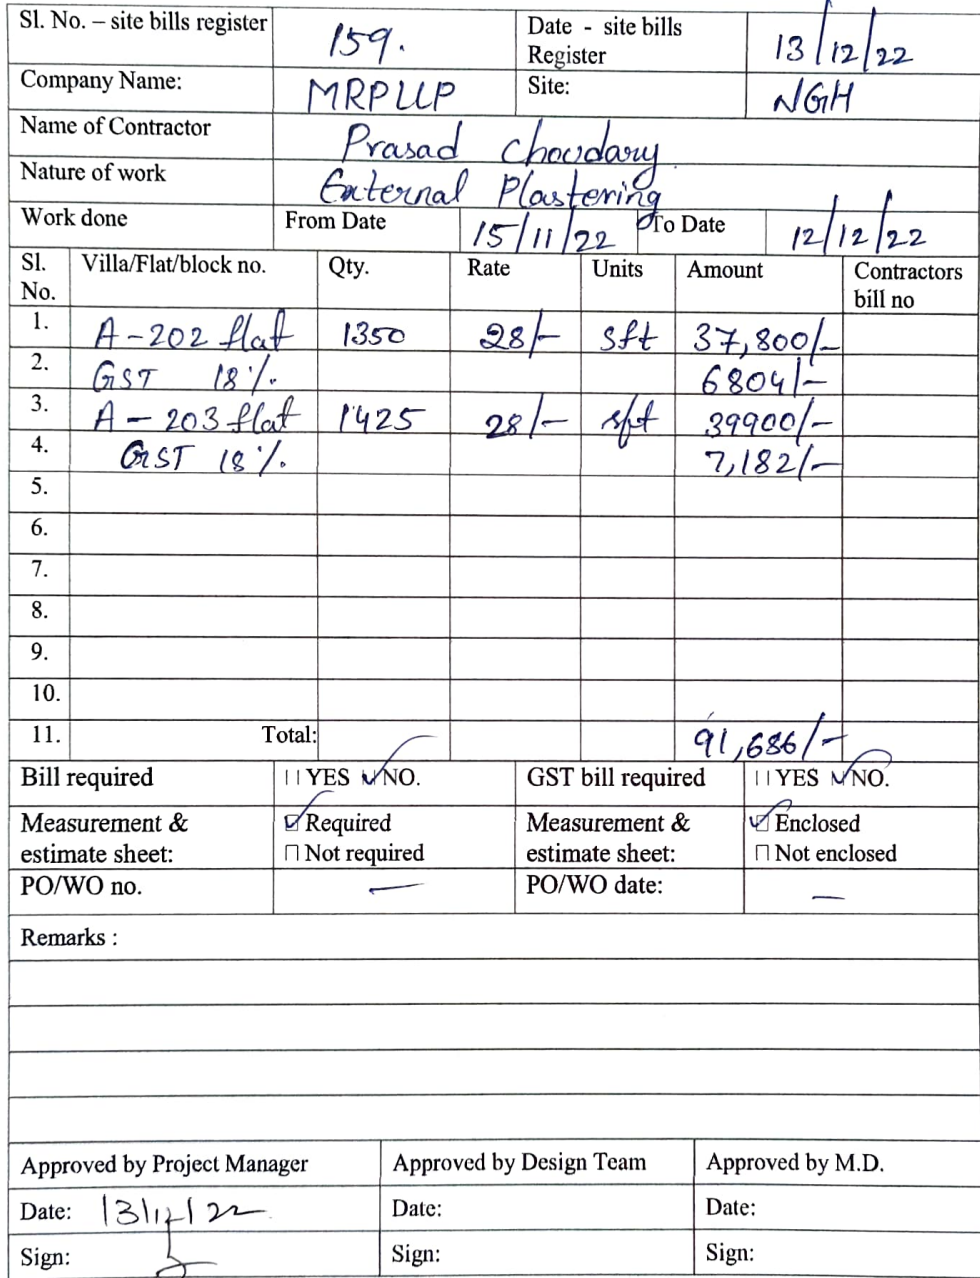 Sl. No. – site bills register 159. Date - site bills Register 13/12/22
Company Name: MRPLLP Site: NGH
Name of Contractor Prasad Choudary
Nature of work External Plastering
Work done From Date 15/11/22 To Date 12/12/22
Sl. No. Villa/Flat/block no. Qty. Rate Units Amount Contractors bill no
1. A-202 flat 1350 28/- sft 37,800/-
2. GST 18%. 6804/-
3. A-203 flat 1425 28/- sft 39900/-
4. GST 18%. 7,182/-
5.
6.
7.
8.
9.
10.
11. Total: 91,686/-
Bill required YES NO. GST bill required YES NO.
Measurement & estimate sheet: ☑ Required Measurement & estimate sheet: ☑ Enclosed
☐ Not required ☐ Not enclosed
PO/WO no. — PO/WO date: —
Remarks :
Approved by Project Manager Approved by Design Team Approved by M.D.
Date: 13/12/22 Date: Date:
Sign: Sign: Sign: